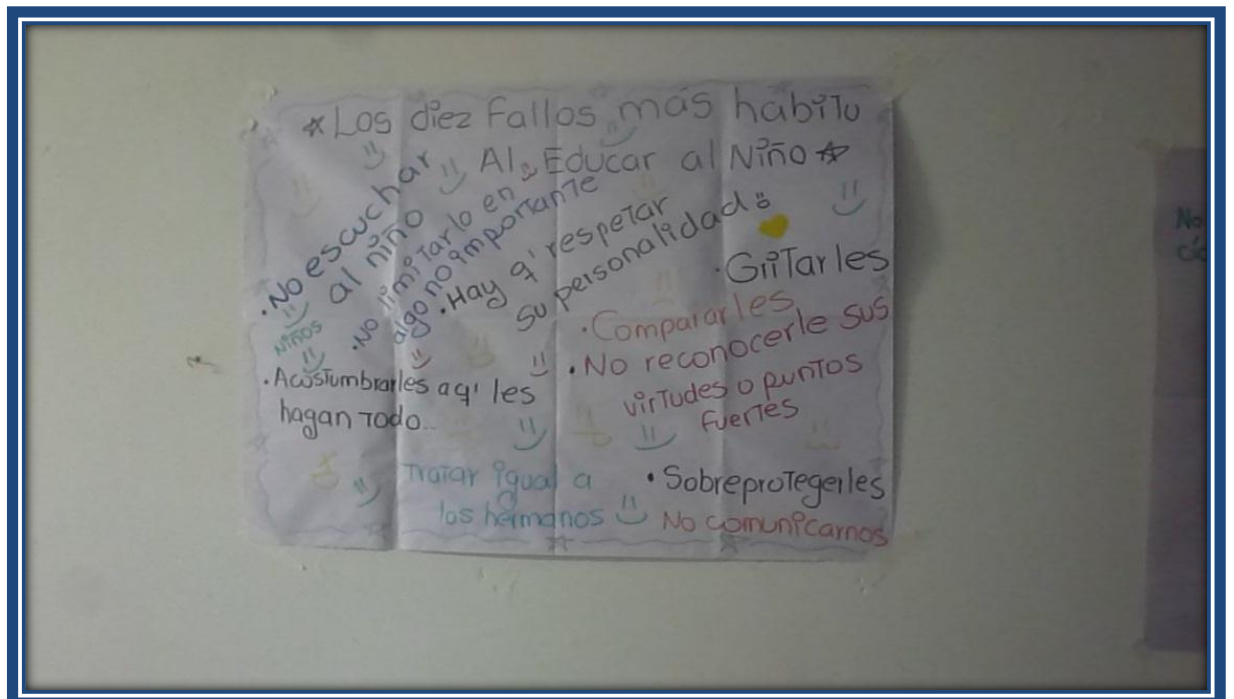 Los diez fallos más habitu
Al Educar al Niño
. No escuchar
al niño
Niños
. No limitarlo en
algo no importante
. Hay q' respetar
su personalidad
. Gritarles
. Compararles
. No reconocerle sus
virtudes o puntos
fuertes
. Acostumbrarles a q' les
hagan todo..
Tratar igual a
los hermanos
• Sobreprotegerles
No comunicarnos
No